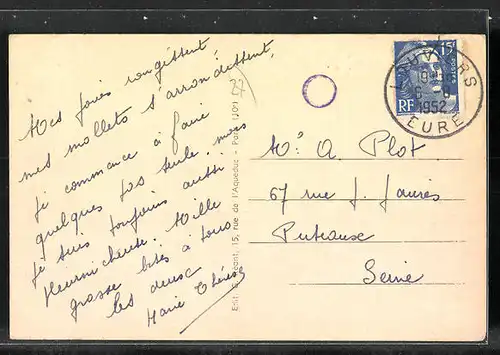 Mes joues rougissent
mes mollets s'arrondissent,
je commence à faire
quelques pas seule mais
je suis toujours aussi
pleurnicheuse. Mille
grosses bises à tous
les deux
Marie Thérèse
27
Edit. Géant, 15, rue de l'Aqueduc - Paris (10e)
LOUVIERS
6 - 9
1952
EURE
15F
POSTES
RF
Mr A. Plot
67 rue J. Jaurès
Puteaux
Seine